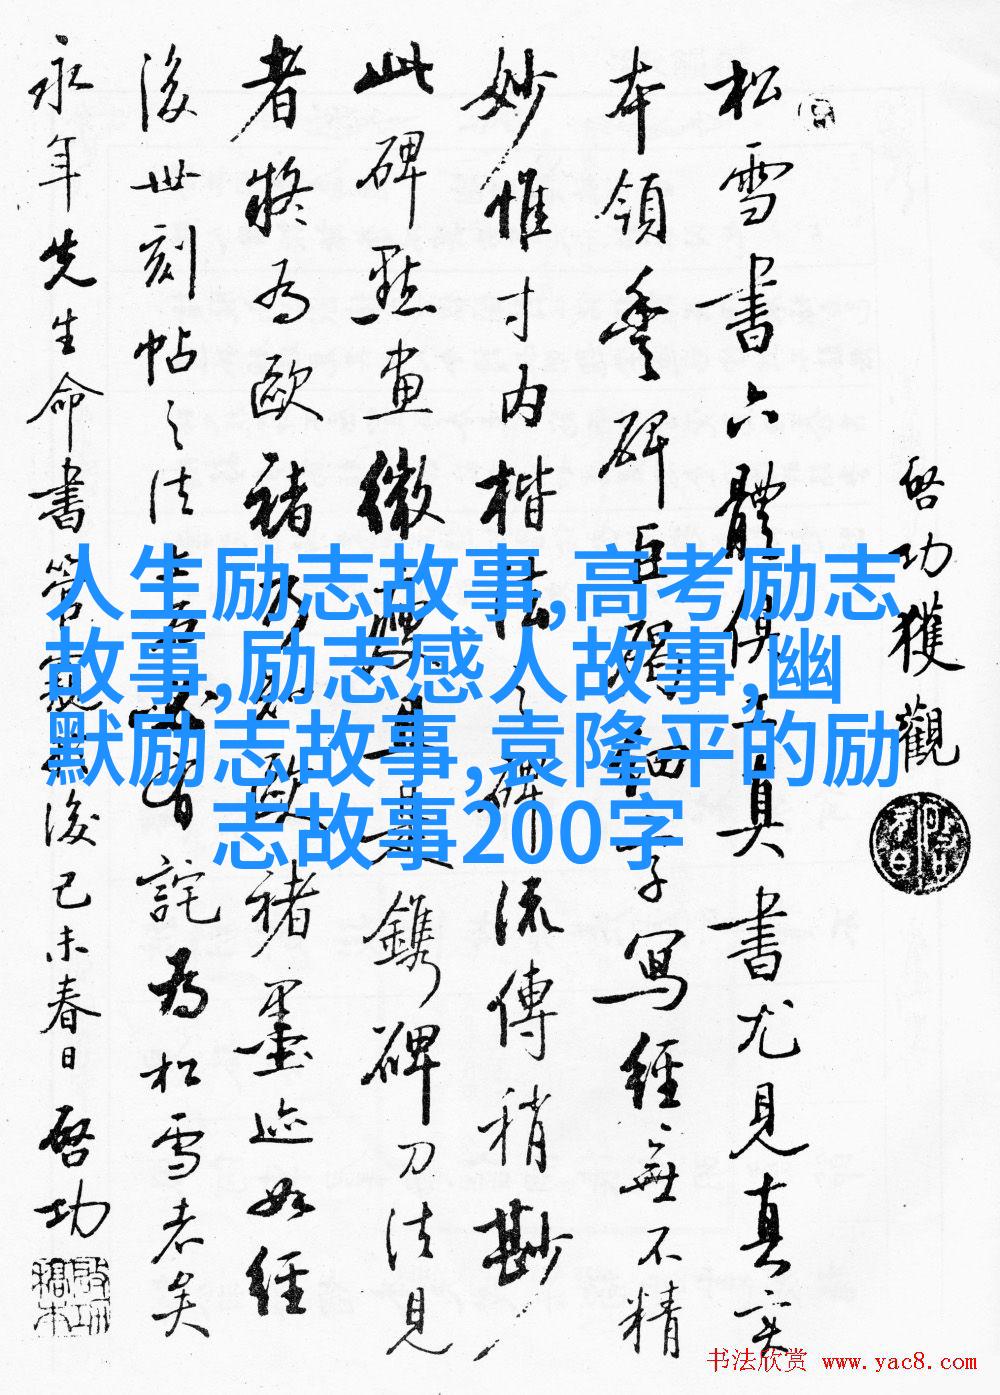 啓功獲觀
松雪書六體俱工真書尤見真實
本領豐碑巨碣細字寫經無不精
妙惟寸内楷法之碑流傳稍尠
此碑點畫徽鐫碑刀法見
者將為歐褚歐褚墨迹如經
後世刻帖之法詫為松雪者矣
永年先生命書後己未春日啓功
人生励志故事,高考励志
故事,励志感人故事,幽
默励志故事,袁隆平的励
志故事200字
书法欣赏 www.yac8.com